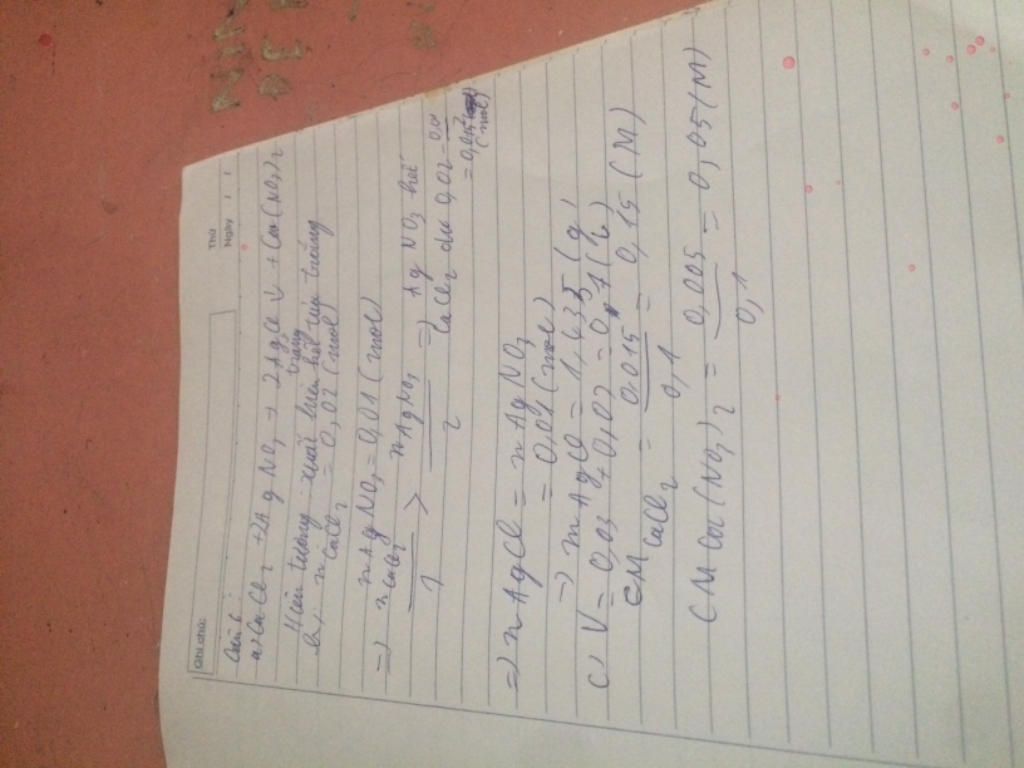 Ghi chú:
Thứ
Ngày / /
Câu 6
a, CaCl2 + 2AgNO3 → 2AgCl ↓ + Ca(NO3)2
trắng
Hiện tượng: xuất hiện kết tủa trắng
b, nCaCl2 = 0,02 (mol)
=> nAgNO3 = 0,01 (mol)
=> nCaCl2/1 > nAgNO3/2 => AgNO3 hết
CaCl2 dư 0,02 - 0,01/2
= 0,015
(mol)
=> nAgCl = nAgNO3
= 0,01 (mol)
=> mAgCl = 1,435 (g)
c, V = 0,03 + 0,07 = 0,1 (l)
CM CaCl2 = 0,015/0,1 = 0,15 (M)
CM Ca(NO3)2 = 0,005/0,1 = 0,05 (M)